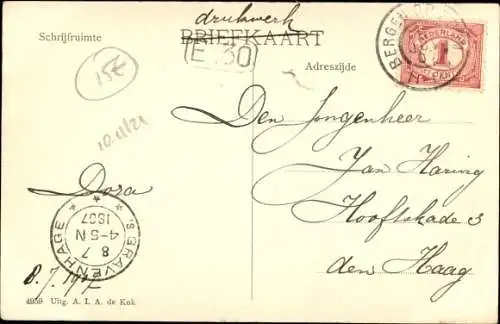 drukwerk
Schrijfruimte
BRIEFKAART
E. 30
Adreszijde
15€
10.11/21
BERGEN OP
NEDERLAND
1
Den Jongenheer
Jan Haring
Hooftskade 3
den Haag
Dora
'S GRAVENHAGE
8 7
4-5 N
8.7.
4959 Uitg. A. I. A. de Kok